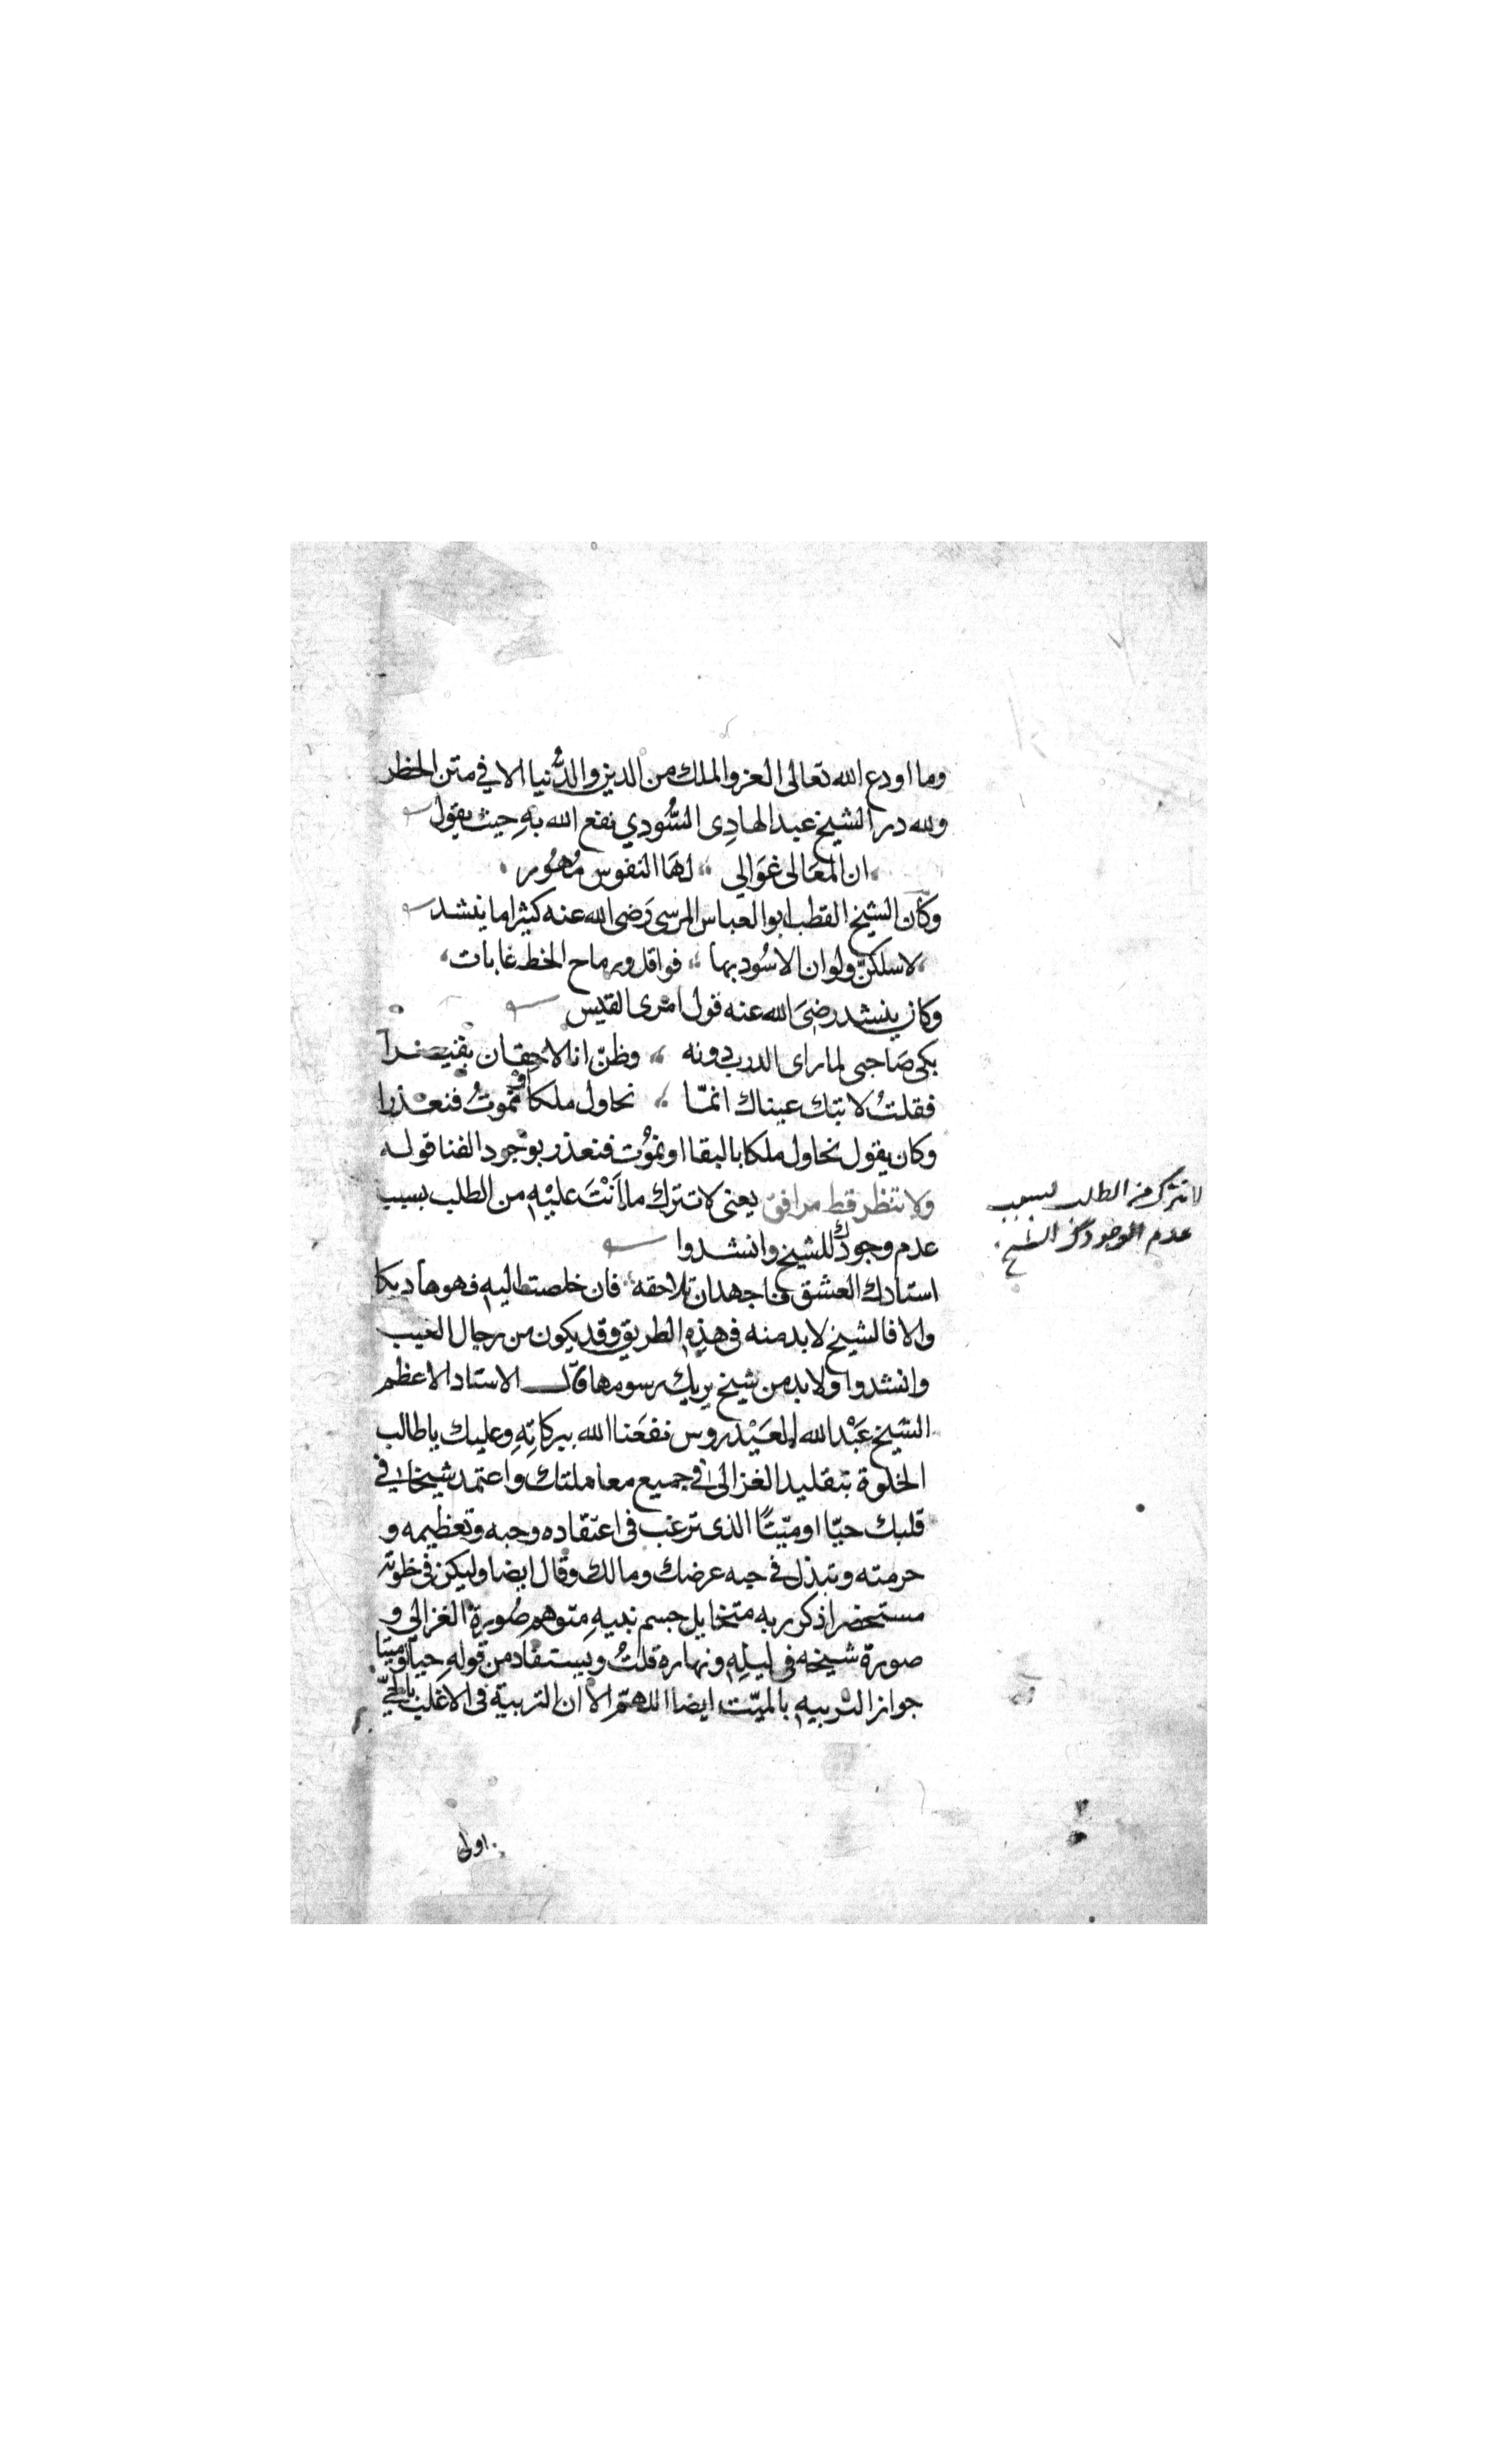 وما اودع الله تعالى العز والملك من الدين والدُّنيا الا في متن الخطر
ولله در الشيخ عبد الهادِى السُّودي نفع الله بهِ حيث يقول
ان المعَالى غوَالي لهَا النفوس مُهُور
وكان الشيخ القطب ابو العباس المرسى رَضى الله عنه كثيرا ما ينشد
لاسلكنّ ولو ان الاسُود بها فواقل ورماح الخط غابات
وكان ينشد رضىَ الله عنه قول امرى القيس
بكى صَاحبى لما راى الدرب دونه وظنّ انا لاحِقان بقيصرا
فقلتُ لا تبك عيناك انمّا نحاول ملكا او نموتُ فنعذرا
وكان يقول نحاول ملكا بالبقا او نموُت فنعذر بوجود الفنا قوله
ولا تنظر قط مرافق يعنى لا تترك ما اَنْتَ عليْهِ من الطلب بسبب
عدم وجودك للشيخ وانشدوا
استادك العشق فاجهد ان تلاحقه فان خلصت اليهِ فهو هاديكا
والا فالشيخ لابد منه فى هذِهِ الطريق وقد يكون من رجال الغيب
وانشدوا ولابد من شيخ يريك رسومها قال الاستاد الاعظم
الشيخ عَبْد الله العَيْدروس نفعَنا الله ببركاتِهِ وعليك ياطالب
الخلوة بتقليد الغزالى في جميع معاملتك واعتمد شيخا في
قلبك حيّا او ميّتًا الذى ترغب فى اعتقاده وحبه وتعظيمه و
حرمته وتبذل في حبه عرضك ومالك وقال ايضا وليكن في خلوته
مستحضرا ذكر ربه متخايل جسم نبيهِ متوهم صُورة الغزالي و
صورة شيخه فى ليلِهِ ونهاره قلتُ ويَستفاد من قولهِ حيّا او ميتا
جواز التربيهِ بالميّت ايضا اللهمّ الا ان التربية فى الاغلب بالحيّ
اولى
لا تترك من الطلب بسبب
عدم الوجودك الشيخ